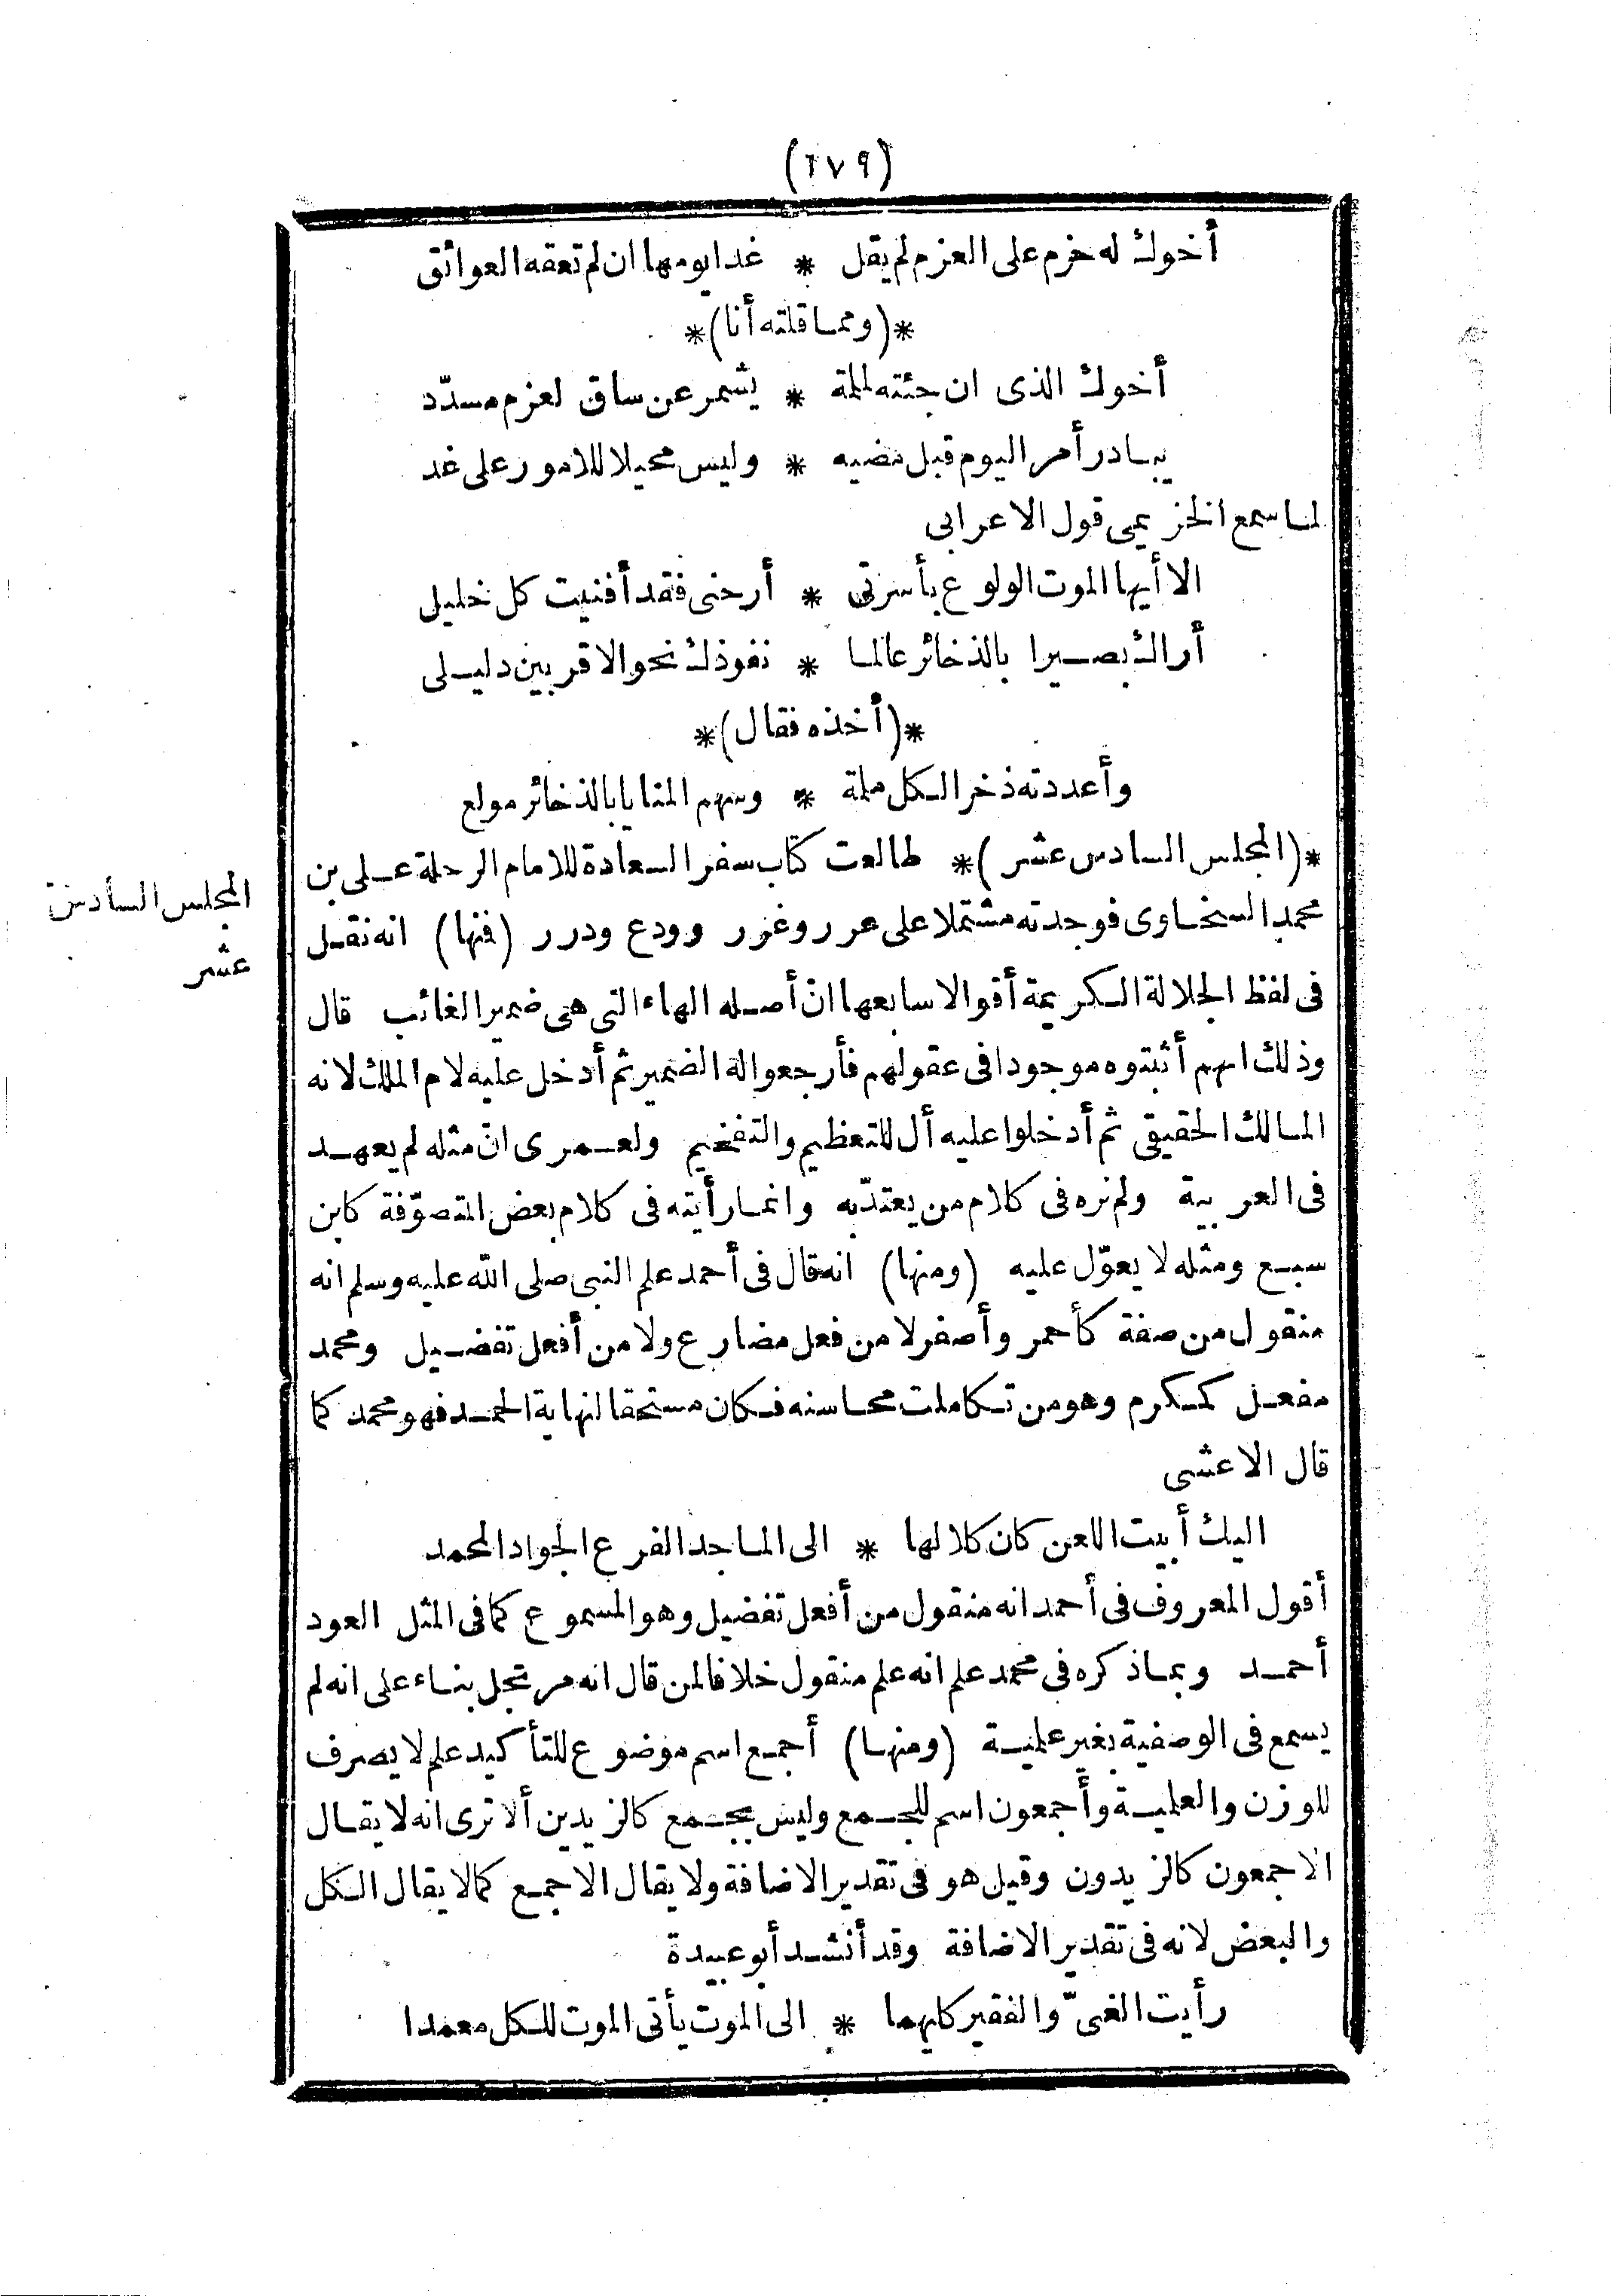 (٢٧٩)
أخوك له حزم على العزم لم يقل * غدا يومها ان لم تعقه العوائق
*(ومما قلته أنا)*
أخوك الذى ان جئته لملمة * يشمر عن ساق لعزم مسدّد
يبادر أمر اليوم قبل مضيه * وليس محيلا للامور على غد
لما سمع الخزيمى قول الاعرابى
الا أيها الموت الولوع بأسرتى * أرحنى فقد أفنيت كل خليل
أراك بصيرا بالذخائر عالما * نفوذك نحو الاقربين دليلى
*(أخذه فقال)*
وأعددته ذخرا لكل ملمة * وسهم المنايا بالذخائر مولع
*(المجلس السادس عشر)* طالعت كتاب سفر السعادة للامام الرحلة على بن
المجلس السادس
عشر
محمد السخاوى فوجدته مشتملا على عرر وغرر وودع ودرر (فمنها) انه نقل
فى لفظ الجلالة الكريمة أقوالا سابعها انّ أصله الهاء التى هى ضمير الغائب قال
وذلك انهم أثبتوه موجودا فى عقولهم فأرجعوا له الضمير ثم أدخل عليه لام الملك لانه
المالك الحقيقى ثم أدخلوا عليه أل للتعظيم والتفخيم ولعمرى انّ مثله لم يعهد
فى العربية ولم نره فى كلام من يعتدّ به وانما رأيته فى كلام بعض المتصوّفة كابن
سبع ومثله لا يعوّل عليه (ومنها) انه قال فى أحمد علم النبى صلى الله عليه وسلم انه
منقول من صفة كأحمر وأصفر لا من فعل مضارع ولا من أفعل تفضيل ومحمد
مفعل كمكرم وهو من تكاملت محاسنه فكان مستحقا لنهاية الحمد فهو محمد كما
قال الاعشى
اليك أبيت اللعن كان كلالها * الى الماجد الفرع الجواد المحمد
أقول المعروف فى أحمد انه منقول من أفعل تفضيل وهو المسموع كما فى المثل العود
أحمد وبما ذكره فى محمد علم انه علم منقول خلافا لمن قال انه مرتجل بناء على انه لم
يسمع فى الوصفية بغير علمية (ومنها) أجمع اسم موضوع للتأكيد علم لا يصرف
للوزن والعلمية وأجمعون اسم للجمع وليس بجمع كالزيدين ألا ترى انه لا يقال
الاجمعون كالزيدون وقيل هو فى تقدير الاضافة ولا يقال الاجمع كمالا يقال الكل
والبعض لانه فى تقدير الاضافة وقد أنشد أبو عبيدة
رأيت الغنىّ والفقير كليهما * الى الموت يأتى الموت للكل معمدا